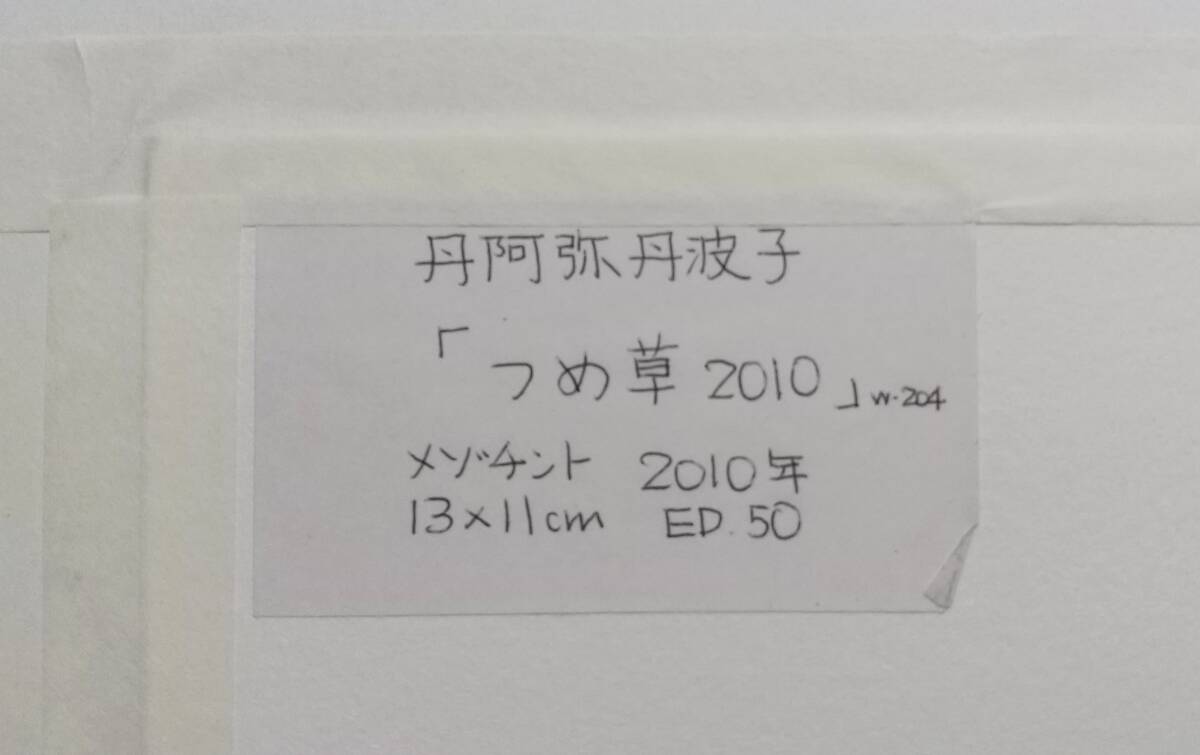 丹阿弥丹波子
「つめ草 2010」W-204
メゾチント 2010年
13×11cm ED.50